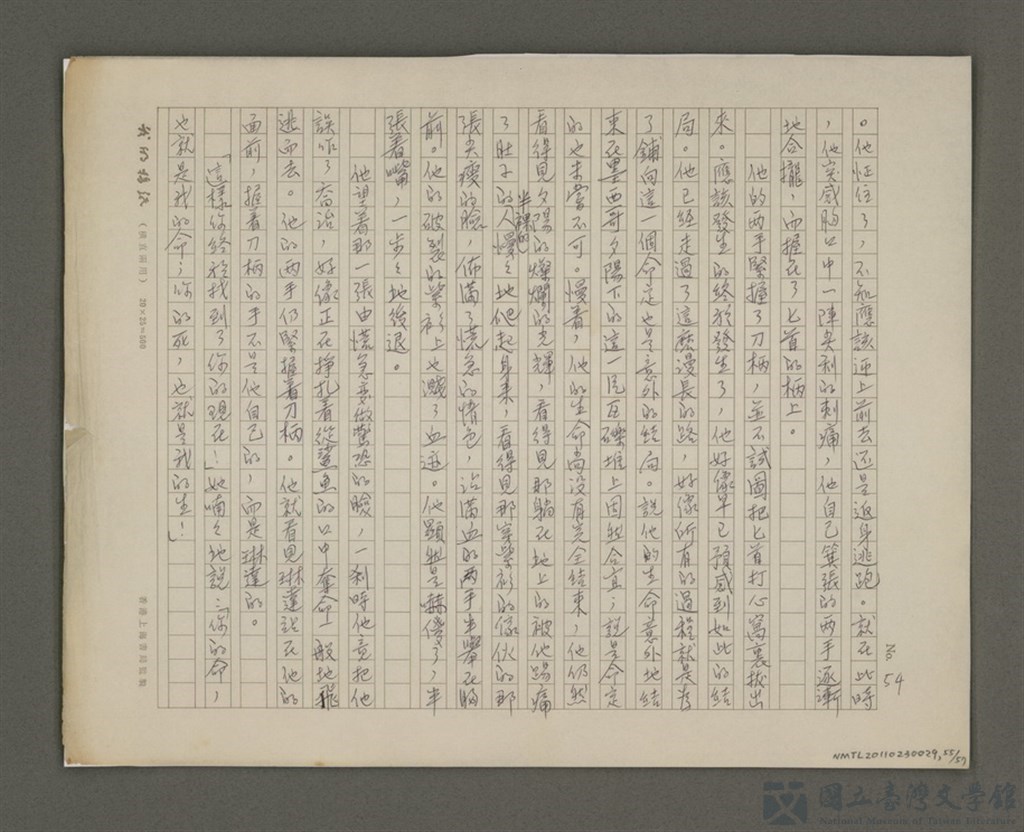 54
。他怔住了，不知應該迎上前去還是返身逃跑。就在此時
，他突感胸口中一陣尖利的刺痛，他自己箕張的兩手逐漸
地合攏，而握在了匕首的柄上。
他的兩手緊握了刀柄，並不試圖把匕首打心窩裏拔出
來。應該發生的終於發生了，他好像早已預感到如此的結
局。他已經走過了這麼漫長的路，好像所有的過程就是為
了鋪向這一個命定也是意外的結局。說他的生命意外地結
束在墨西哥夕陽下的這一片瓦礫堆上固然合宜；說是命定
的也未嘗不可。慢着，他的生命尚沒有完全結束，他仍然
看得見夕陽的燦爛的光輝，看得見那躺在地上的被他踢痛
了肚子的半裸的人慢々地爬起身來，看得見那穿紫衫的傢伙的那
張尖瘦的臉，佈滿了慌急的情色，沾滿血的兩手半舉在胸
前。他的破裂的紫衫上也濺了血迹。他顯然是嚇傻了，半
張着嘴，一步々地後退。
他望着那一張由慌急變做驚恐的臉，一剎時他竟把他
誤作了喬治，好像正在掙扎着從鯊魚的口中奪命一般地飛
逃而去。他的兩手仍緊握着刀柄。他就看見琳達站在他的
面前，握着刀柄的手不是他自己的，而是琳達的。
「這樣你終於找到了你的現在！」她喃々地說：「你的命，
也就是我的命；你的死，也就是我的生！」
（橫直兩用） 20×25=500
香港上海書局監製
NMTL20110230029, 55/57
國立臺灣文學館
National Museum of Taiwan Literature